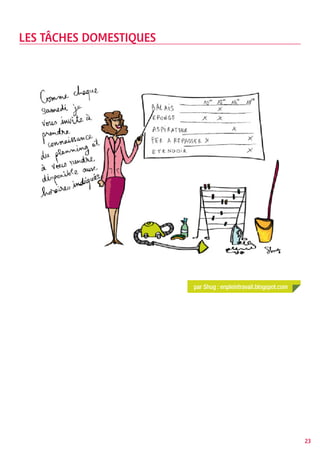 LES TÂCHES DOMESTIQUES
Comme chaque
samedi je
vous invite à
prendre
connaissance
du planning et
à vous rendre
disponible aux
horaires indiqués
BALAIS X
EPONGE X X
ASPIRATEUR X
FER A REPASSER X X
ETENDOIR X
Shug
par Shug : enpleintravail.blogspot.com
23